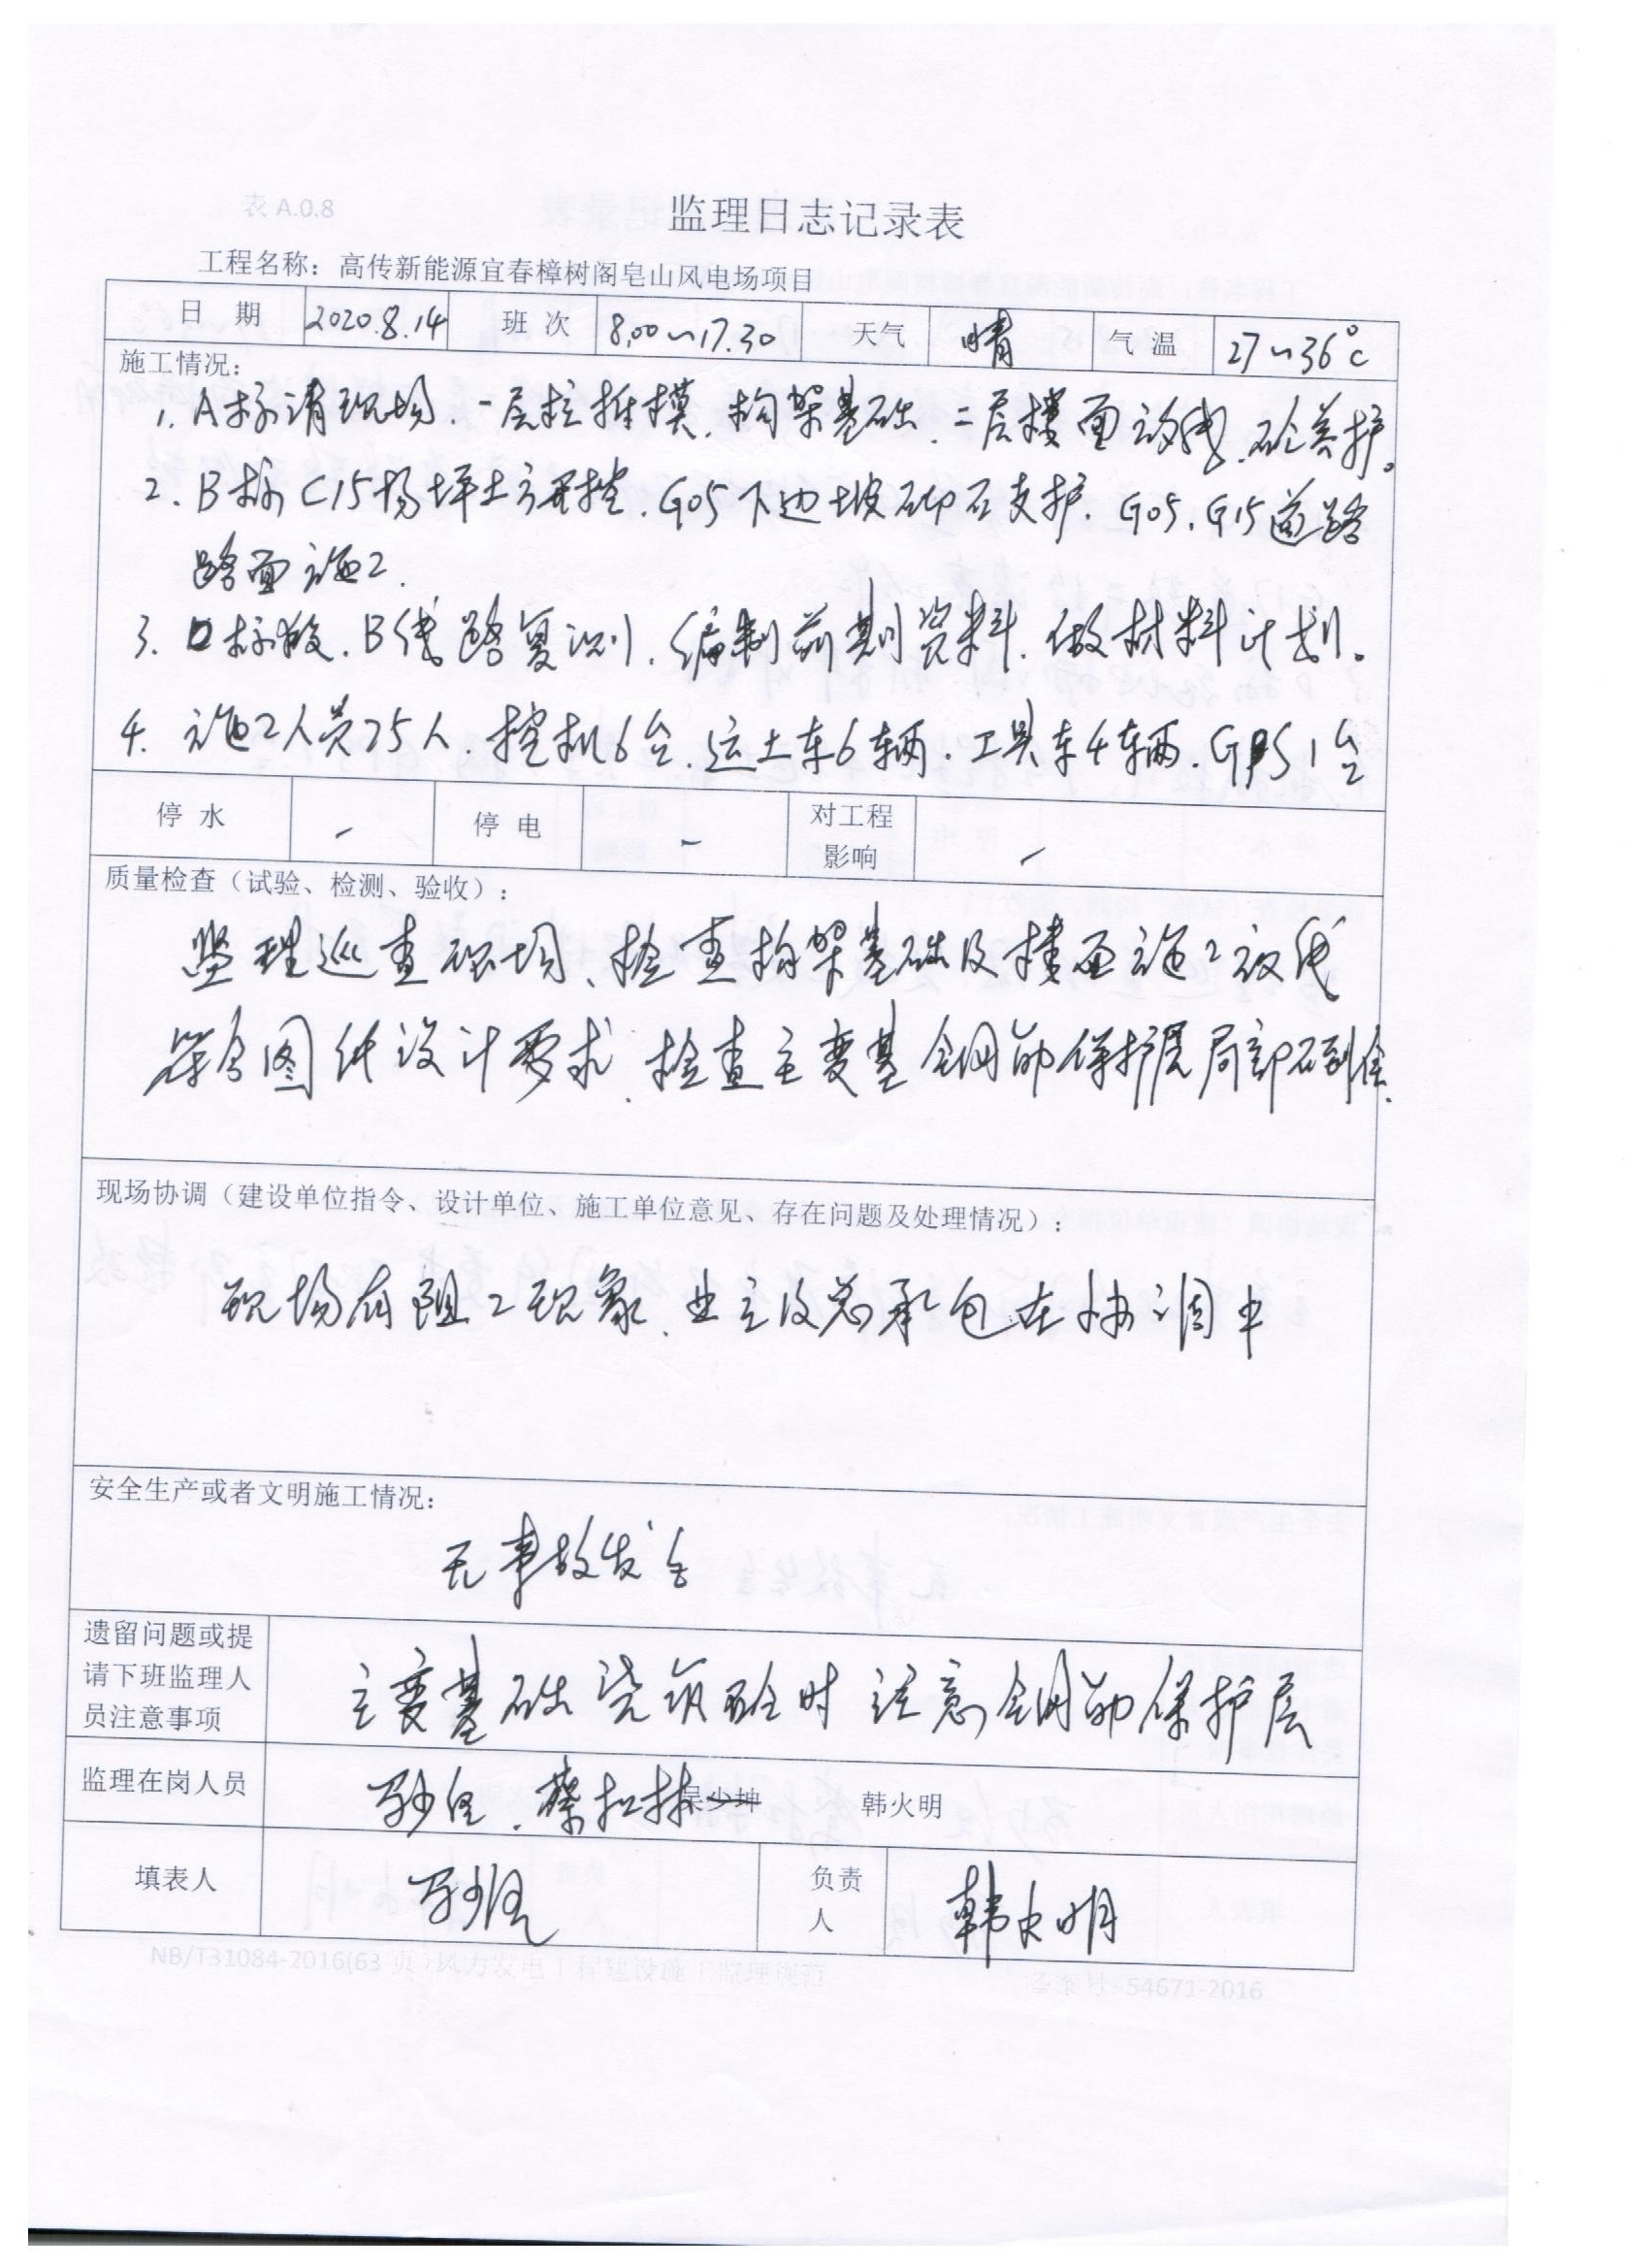 表 A.0.8
监理日志记录表
工程名称：高传新能源宜春樟树阁皂山风电场项目
日 期 2020.8.14 班 次 8,00~17.30 天气 晴 气 温 27~36℃
施工情况：
1. A标清现场、一层柱拆模、构架基础、二层楼面放线、砼养护。
2. B标C15场坪土方开挖、G05下边坡砌石支护、G05、G15道路
路面施工.
3. D标 B线路复测、编制前期资料、做材料计划。
4. 施工人员25人、挖机6台、运土车6辆、工具车4辆、GPS1台
停 水 - 停 电 - 对工程影响 -
质量检查（试验、检测、验收）：
监理巡查现场、检查构架基础及楼面施工放线
符合图纸设计要求、检查主变基钢筋保护层局部不到位.
现场协调（建设单位指令、设计单位、施工单位意见、存在问题及处理情况）：
现场有阻工现象、业主及总承包在协调中
安全生产或者文明施工情况：
无事故发生
遗留问题或提
请下班监理人
员注意事项
主变基础浇筑砼时注意钢筋保护层
监理在岗人员 吴少坤 韩火明
填表人 负责人 韩火明
NB/T31084-2016(63 页)风力发电工程建设施工监理规范 备案号：54671-2016